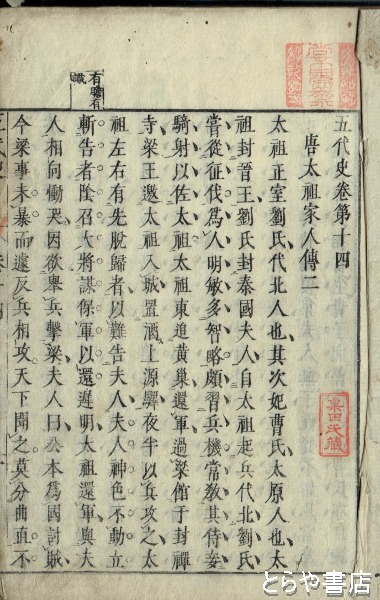 五代史卷第十四
唐太祖家人傳二
太祖正室劉氏代北人也其次妃曹氏太原人也太
祖封晉王劉氏封秦國夫人自太祖起兵代北劉氏
嘗從征伐爲人明敏多智略頗習兵機常敎其侍妾
騎射以佐太祖太祖東追黃巢還軍過梁館于封禪
寺梁王邀太祖入城置酒上源驛夜半以兵攻之太
祖左右有先脫歸者以難告夫人夫人神色不動立
斬告者陰召大將謀保軍以還遲明太祖還軍與夫
人相向慟哭因欲舉兵擊梁夫人曰公本爲國討賊
今梁事未暴而遽反兵相攻天下聞之莫分曲直不
有膽有
識
栗田氏藏
とらや書店